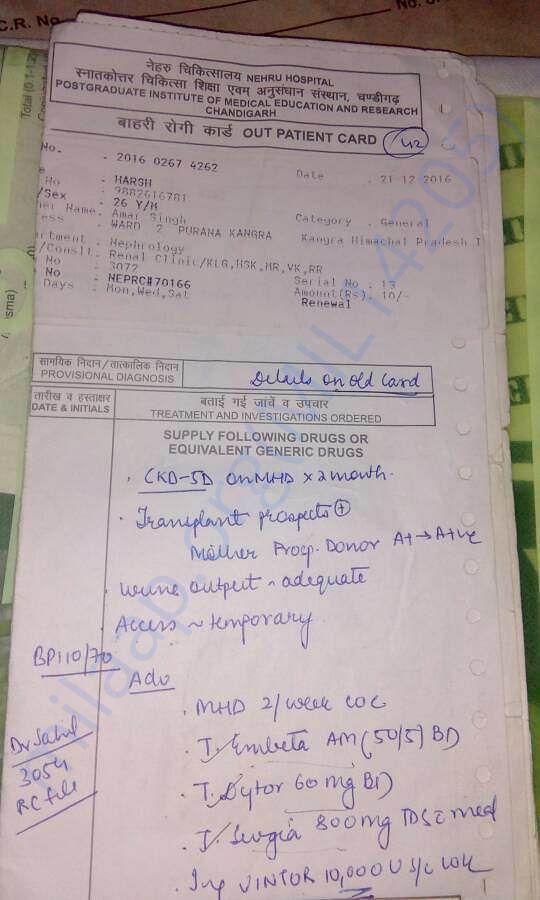 C.R. No.
No.
नेहरु चिकित्सालय NEHRU HOSPITAL
स्नातकोत्तर चिकित्सा शिक्षा एवम अनुसंधान संस्थान, चण्डीगढ़
POSTGRADUATE INSTITUTE OF MEDICAL EDUCATION AND RESEARCH
CHANDIGARH
बाहरी रोगी कार्ड OUT PATIENT CARD
No. - 2016 0267 4262 Date . 21-12-2016
- HARSH
No - 9882616781
/Sex - 26 Y/M
her Name- Amar Singh Category . General
ess - WARD 2 PURANA KANGRA Kangra Himachal Pradesh I
artment : Nephrology
/Conslt. Renal Clinic/KLG,HSK,MR,VK,RR
No - 3072 Serial No . 13
No - NEPRC#70166 Amount(Rs). 10/-
Days - Mon,Wed,Sat Renewal
सामयिक निदान/तात्कालिक निदान
PROVISIONAL DIAGNOSIS
Details on old Card
तारीख व हस्ताक्षर
DATE & INITIALS
बताई गई जाचें व उपचार
TREATMENT AND INVESTIGATIONS ORDERED
SUPPLY FOLLOWING DRUGS OR
EQUIVALENT GENERIC DRUGS
CKD-5D on MHD x 2 month.
Transplant prospects +
Mother Prosp. Donor A+ → A+ve
urine output ~ adequate
Access ~ temporary
BP 110/70
Adv
MHD 2/week
T. Embeta AM (50/5) BD
Dr Sahil
3054
RC file
T. Dytor 60 mg BD
T. 800mg TDS
Inj VINTOR 10,000 U s/c
milaap.org